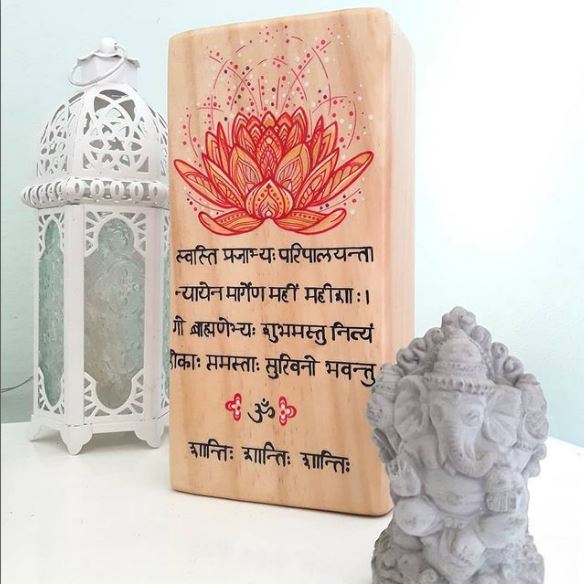 स्वस्ति प्रजाभ्यः परिपालयन्ता
न्यायेन मार्गेण महीं महीशाः।
गो ब्राह्मणेभ्यः शुभमस्तु नित्यं
ोकाः समस्ताः सुखिनो भवन्तु
ॐ
शान्तिः शान्तिः शान्तिः